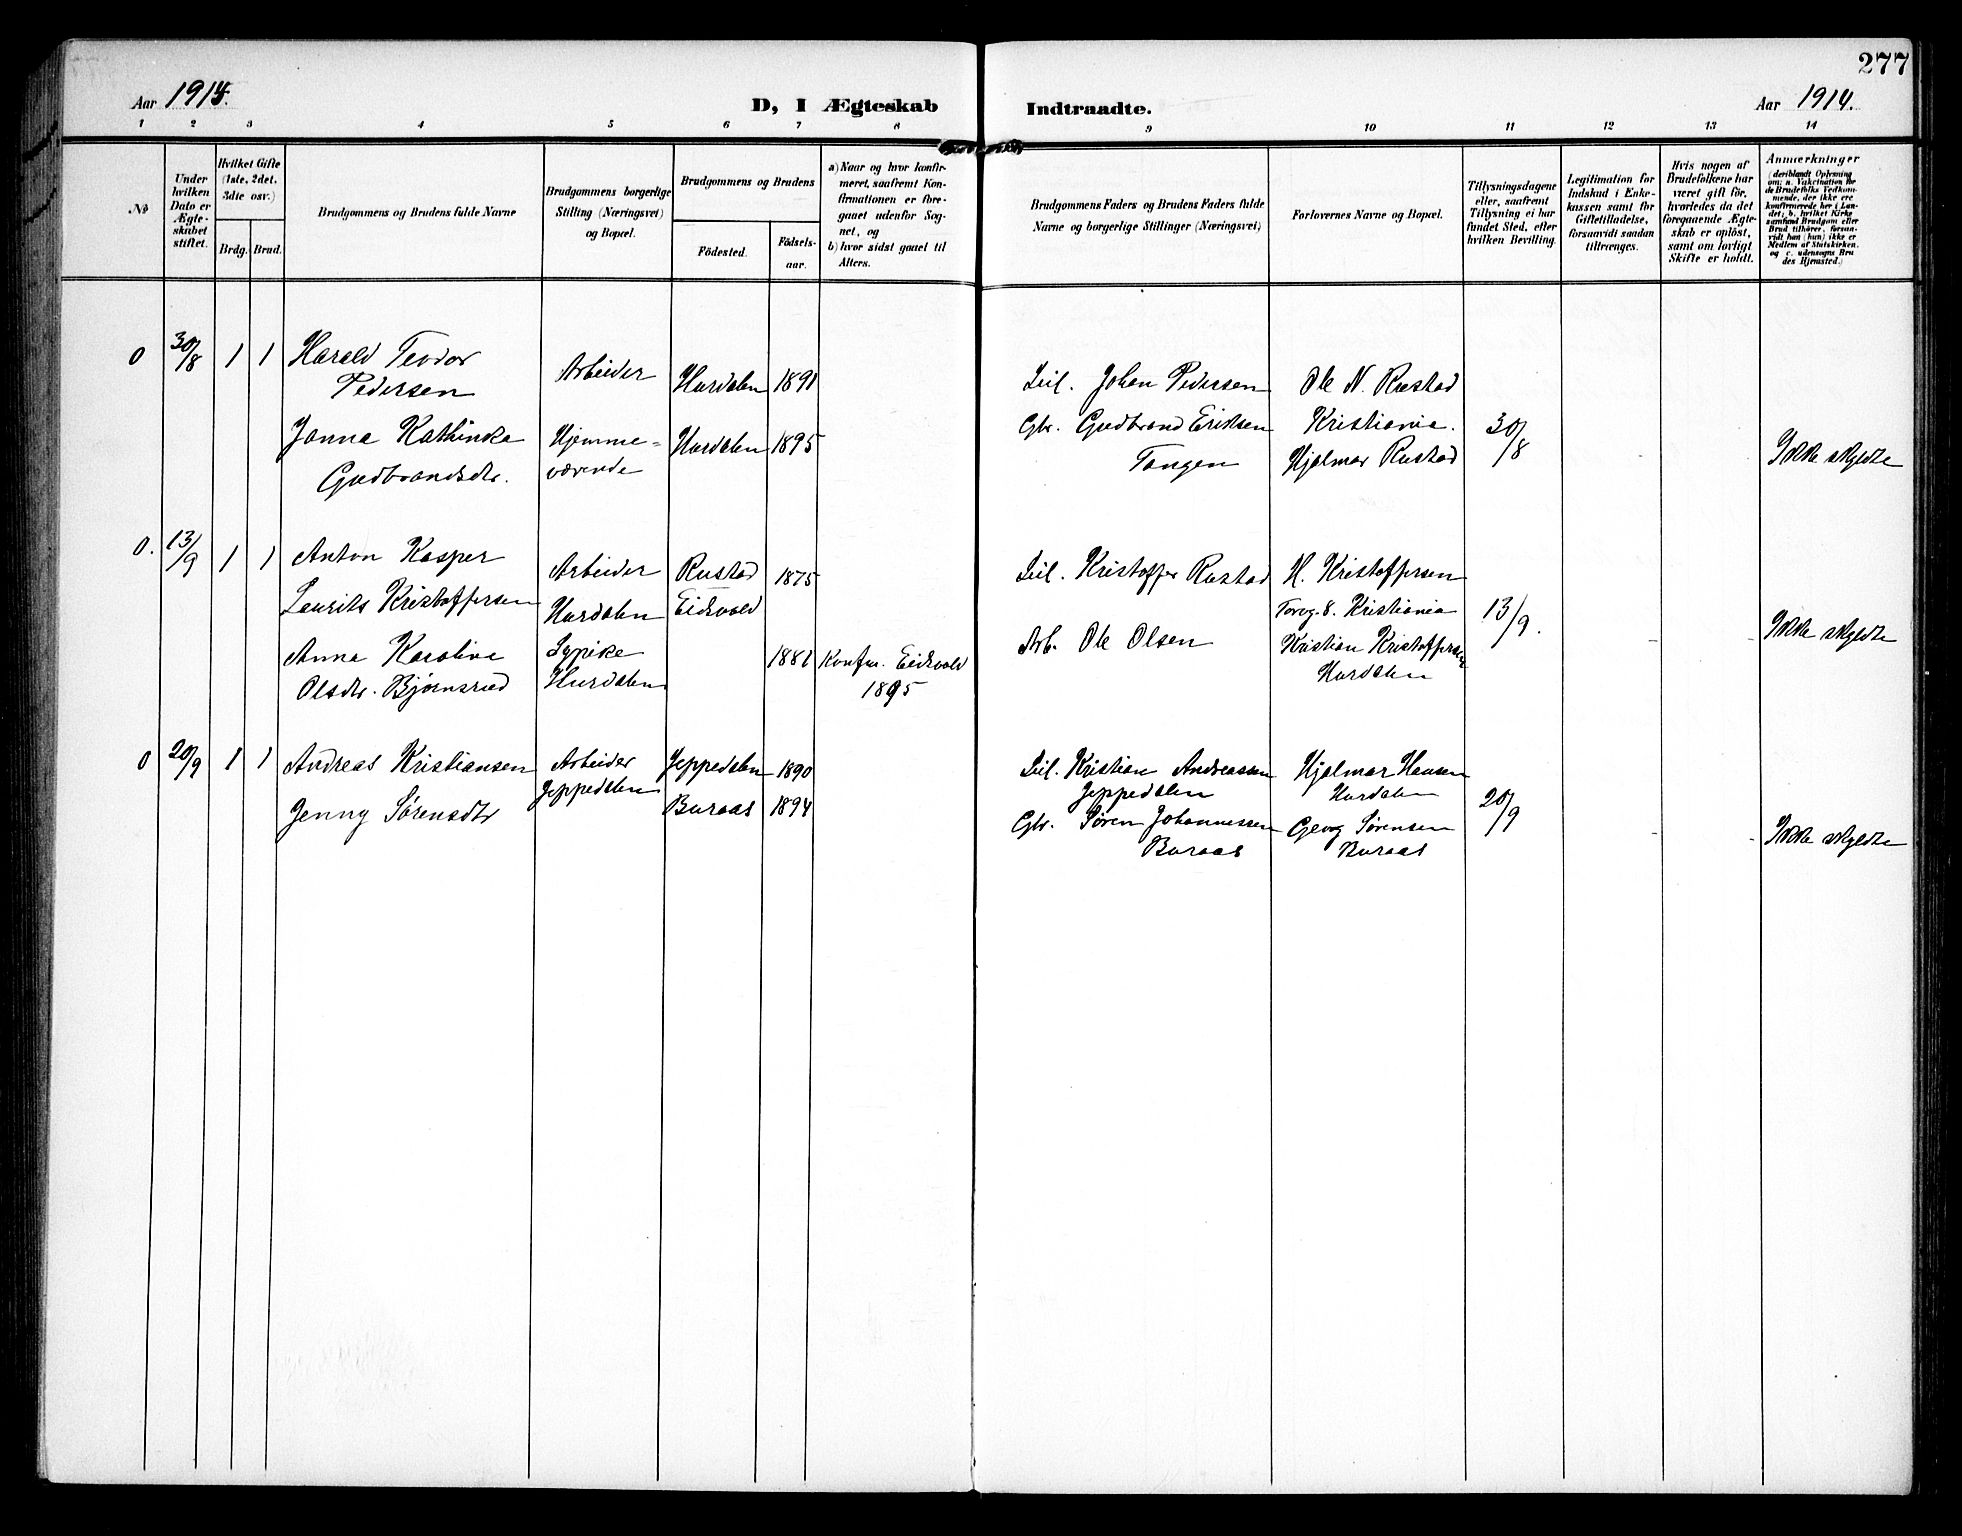 277
Aar 1914.
D, I Ægteskab
Indtraadte.
Aar 1914.
1 2 3 4 5 6 7 8
9 10 11 12 13 14
№
Under
hvilken
Dato er
Ægte-
skabet
stiftet.
Hvilket Gifte
(1ste, 2det,
3die osv.)
Brdg.
Brud.
Brudgommens og Brudens fulde Navne
Brudgommens borgerlige
Stilling (Næringsvei)
og Bopæl.
Brudgommens og Brudens
Födested.
Födsels-
aar.
a) Naar og hvor konfir-
meret, saafremt Kon-
firmationen er fore-
gaaet udenfor Sog-
net, og
b) hvor sidst gaaet til
Alters.
Brudgommens Faders og Brudens Faders fulde
Navne og borgerlige Stillinger (Næringsvei)
Forlovernes Navne og Bopæl.
Tillysningsdagene
eller, saafremt
Tillysning ei har
fundet Sted, efter
hvilken Bevilling.
Legitimation for
Indskud i Enke-
kassen samt for
Giftetilladelse,
forsaavidt saadan
tiltrænges.
Hvis nogen af
Brudefolkene har
været gift før,
hvorledes da det
foregaaende Ægte-
skab er oplöst,
samt om lovligt
Skifte er holdt.
Anmerkninger
(deriblandt Oplysning
om: a. Vakcination for
de Brudefolks Vedkom-
mende, der ikke ere
konfirmerede her i Lan-
det; b. hvilket Kirke
samfund Brudgom eller
Brud tilhører, forsaa-
vidt han (hun) ikke er
Medlem af Statskirken.
og c. udensogns Bru
des Hjemsted.)
0 30/8 1 1 Harald Teodor
Pedersen
Arbeider
Hurdalen 1891
Leil. Johan Pedersen
Ole N. Rustad
Kristiania.
Janna Kathinka
Gudbrandsdtr.
Hjemme-
værende
Hurdalen 1895
Gbr. Gudbrand Eriksen
Tangen
Hjalmar Rustad
30/8
Ikke skyldte
0. 13/9 1 1 Anton Kasper
Laurits Kristoffersen
Arbeider
Hurdalen
Rustad
Eidsvold
1875
Leil. Kristoffer Rustad
H. Kristoffersen
Torvg. 8. Kristiania
13/9.
Anna Karoline
Olsdtr. Bjørnsrud
Hurdalen
1881
Konfm. Eidsvold
1895
Arb. Ole Olsen
Kristian Kristoffersen
Hurdalen
Ikke skyldte
0 20/9 1 1 Andreas Kristiansen
Arbeider
Jeppedalen
Jeppedalen 1890
Leil. Kristian Andreassen
Jeppedalen
Hjalmar Hansen
Hurdalen
20/9
Jenny Sørensdtr
Buraas 1894
Gbr. Søren Johannessen
Buraas
Georg Sørensen
Buraas
Ikke skyldte